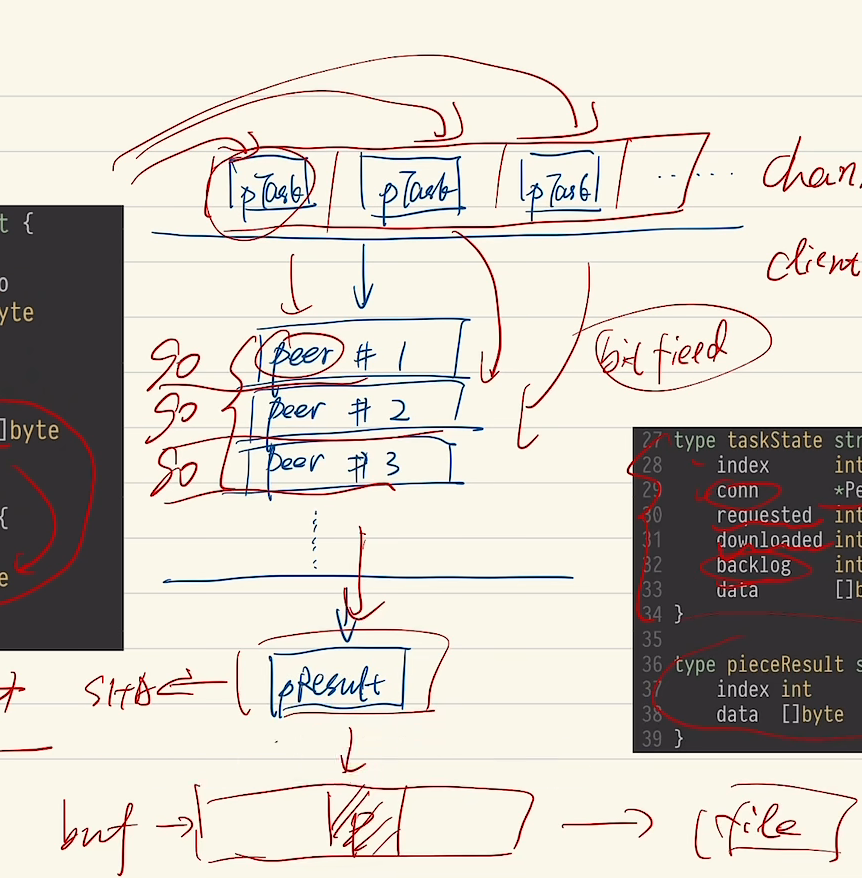 pTask pTask pTask ......
chan
client
t {
o
yte
]byte
{
e
go peer # 1
go peer # 2
go peer # 3
bit field
27 type taskState str
28 index int
29 conn *Pe
30 requested int
31 downloaded int
32 backlog int
33 data []b
34 }
35
36 type pieceResult s
37 index int
38 data []byte
39 }
pResult
buf → P → file